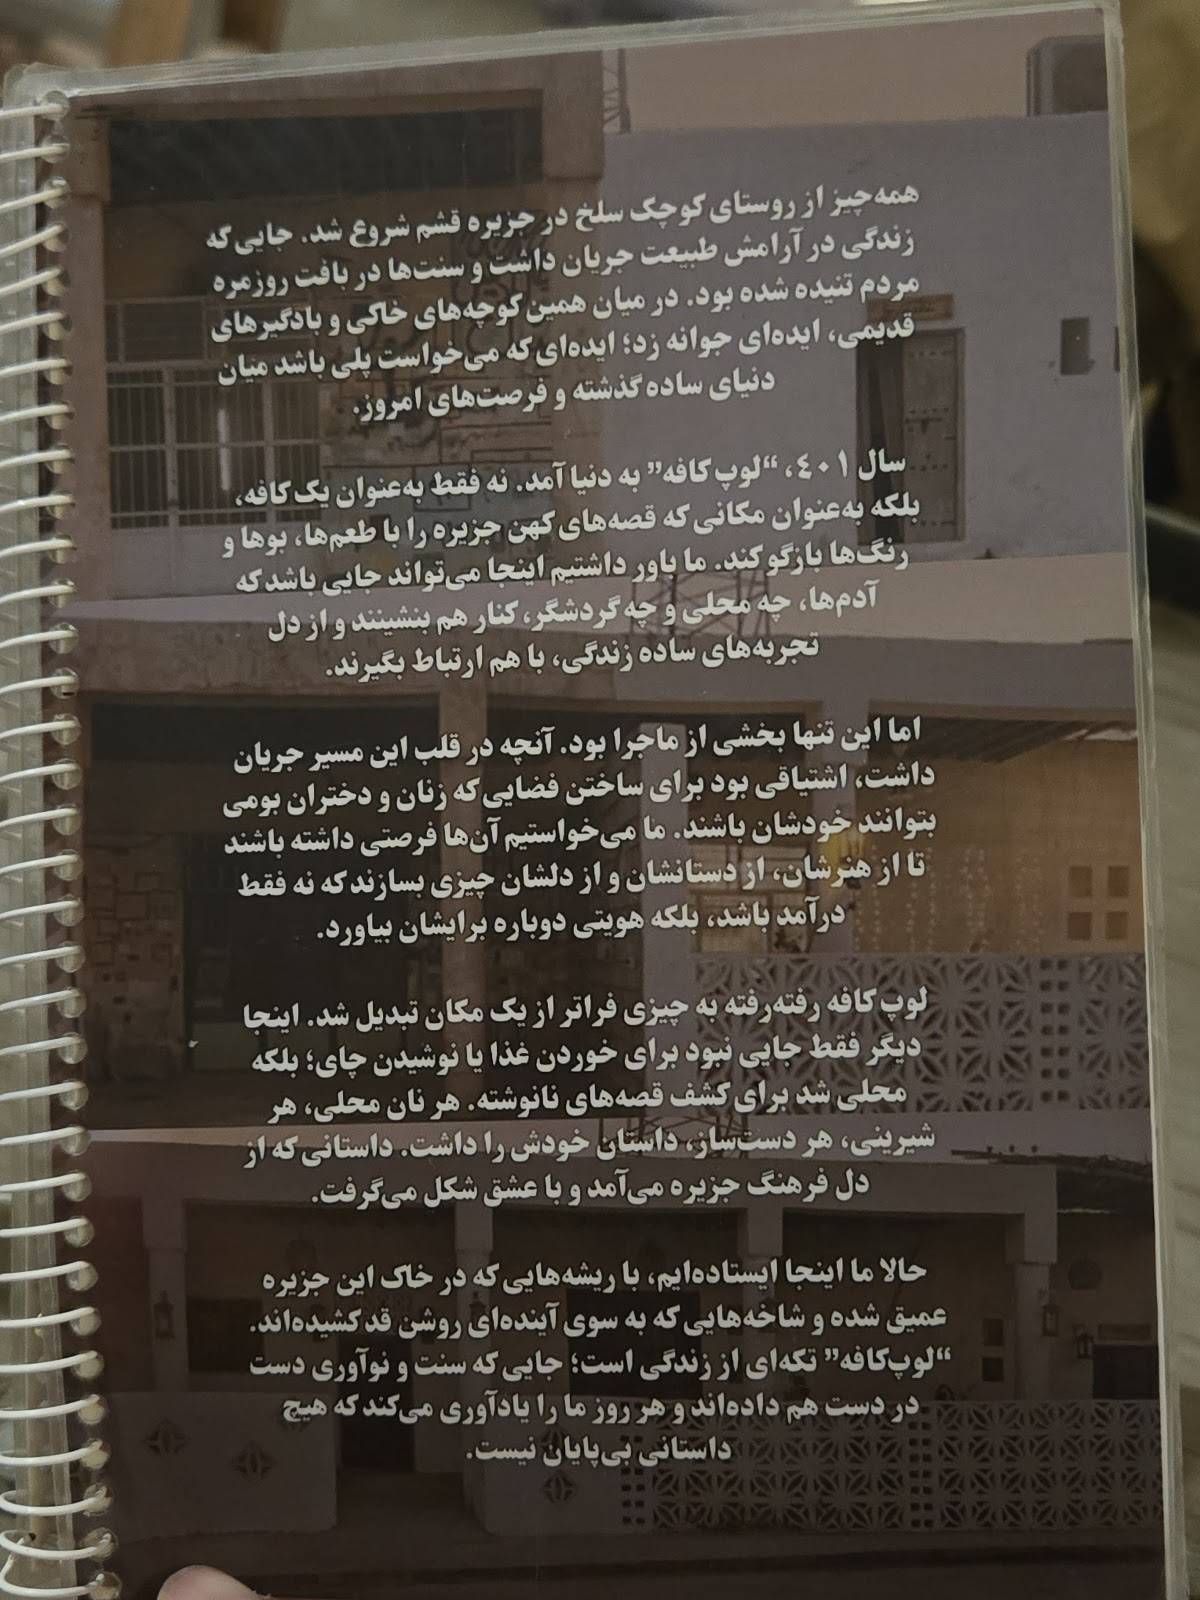 همه‌چیز از روستای کوچک سلخ در جزیره قشم شروع شد. جایی که
زندگی در آرامش طبیعت جریان داشت و سنت‌ها در بافت روزمره
مردم تنیده شده بود. در میان همین کوچه‌های خاکی و بادگیرهای
قدیمی، ایده‌ای جوانه زد؛ ایده‌ای که می‌خواست پلی باشد میان
دنیای ساده گذشته و فرصت‌های امروز.
سال ٤٠١، “لوپ کافه” به دنیا آمد. نه فقط به‌عنوان یک کافه،
بلکه به‌عنوان مکانی که قصه‌های کهن جزیره را با طعم‌ها، بوها و
رنگ‌ها بازگو کند. ما باور داشتیم اینجا می‌تواند جایی باشد که
آدم‌ها، چه محلی و چه گردشگر، کنار هم بنشینند و از دل
تجربه‌های ساده زندگی، با هم ارتباط بگیرند.
اما این تنها بخشی از ماجرا بود. آنچه در قلب این مسیر جریان
داشت، اشتیاقی بود برای ساختن فضایی که زنان و دختران بومی
بتوانند خودشان باشند. ما می‌خواستیم آن‌ها فرصتی داشته باشند
تا از هنرشان، از دستانشان و از دلشان چیزی بسازند که نه فقط
درآمد باشد، بلکه هویتی دوباره برایشان بیاورد.
لوپ کافه رفته‌رفته به چیزی فراتر از یک مکان تبدیل شد. اینجا
دیگر فقط جایی نبود برای خوردن غذا یا نوشیدن چای؛ بلکه
محلی شد برای کشف قصه‌های نانوشته. هر نان محلی، هر
شیرینی، هر دست‌ساز، داستان خودش را داشت. داستانی که از
دل فرهنگ جزیره می‌آمد و با عشق شکل می‌گرفت.
حالا ما اینجا ایستاده‌ایم، با ریشه‌هایی که در خاک این جزیره
عمیق شده و شاخه‌هایی که به سوی آینده‌ای روشن قد کشیده‌اند.
“لوپ‌کافه” تکه‌ای از زندگی است؛ جایی که سنت و نوآوری دست
در دست هم داده‌اند و هر روز ما را یادآوری می‌کند که هیچ
داستانی بی‌پایان نیست.